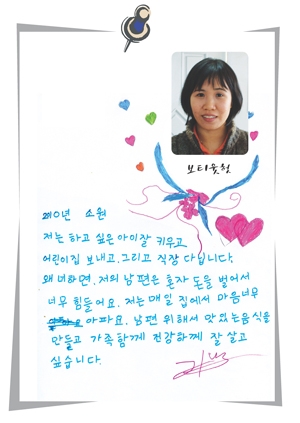 보티웃청
2010년 소원
저는 하고 싶은 아이잘 키우고
어린이집 보내고, 그리고 직장 다닙니다.
왜 냐하면, 저의 남편은 혼자 돈을 벌어서
너무 힘들어요. 저는 매일 집에서 마음너무
아파요. 남편 위해서 맛있는음식을
만들고 가족함께 건강하께 잘 살고
싶습니다.